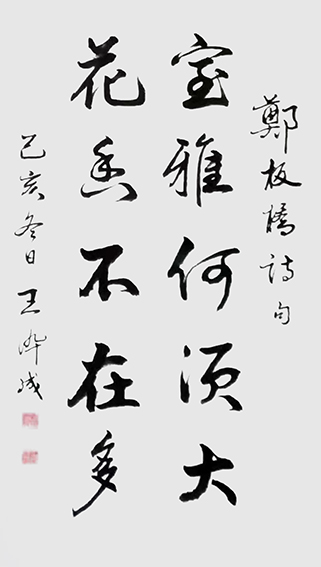 鄭板橋詩句
室雅何須大
花香不在多
己亥冬日王
成